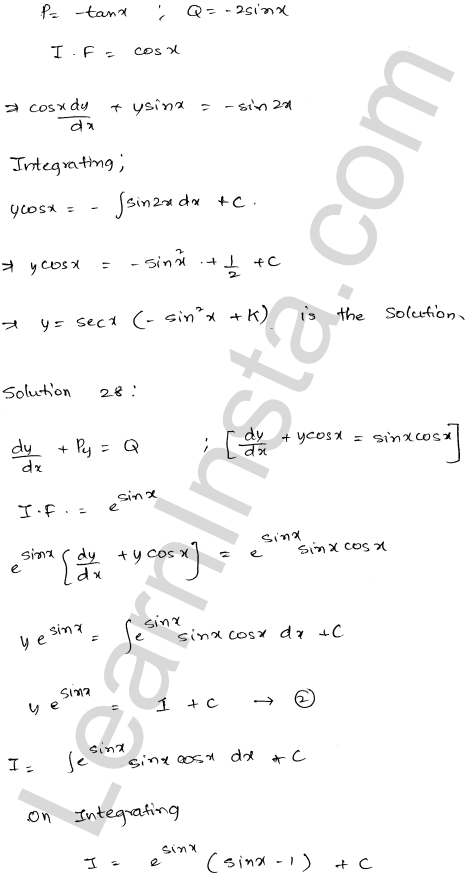 P= -tanx ; Q = -2sinx
I.F = cosx
⇒ cosx dy/dx + ysinx = -sin2x
Integrating;
ycosx = - ∫sin2x dx + C.
⇒ ycosx = -sin²x + 1/2 + C
⇒ y = secx (-sin²x + K) is the solution.
Solution 28:
dy/dx + Py = Q ; [dy/dx + ycosx = sinxcosx]
I.F. = e^sinx
e^sinx [dy/dx + ycosx] = e^sinx sinxcosx
y e^sinx = ∫e^sinx sinxcosx dx + C
y e^sinx = I + C → ②
I = ∫e^sinx sinxcosx dx + C
On Integrating
I = e^sinx (sinx-1) + C
LearnInsta.com